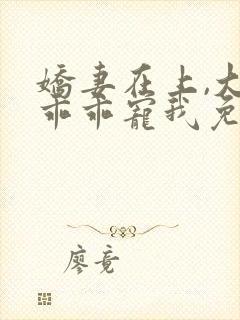 嬌妻在上,大
乖乖寵我免
廖竟